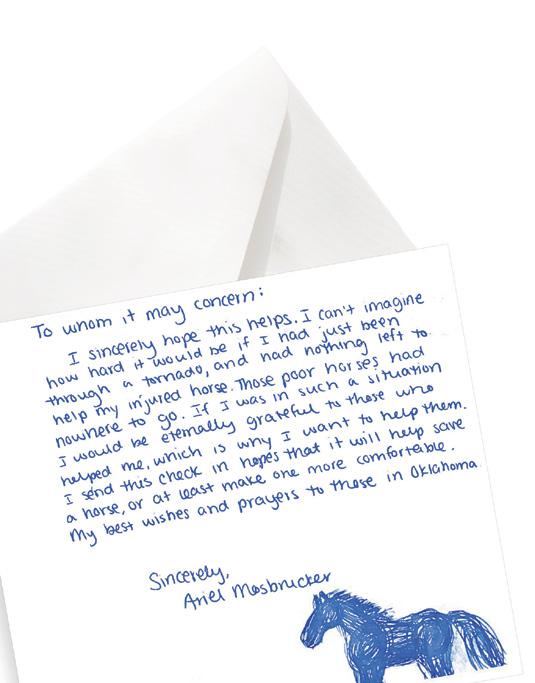 To whom it may concern:
I sincerely hope this helps. I can't imagine
how hard it would be if I had just been
through a tornado, and had nothing left to
help my injured horse. Those poor horses had
nowhere to go. If I was in such a situation
I would be eternally grateful to those who
helped me, which is why I want to help them.
I send this check in hopes that it will help save
a horse, or at least make one more comfortable.
My best wishes and prayers to those in Oklahoma
Sincerely,
Ariel Mosbrucker